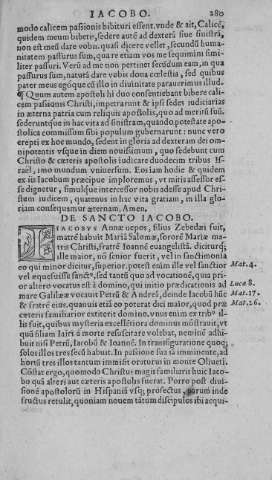 IACOBO. 280
modo calicem passionis bibituri essent, vnde & ait, Calicē
quidem meum bibetis, sedere autē ad dexterā siue sinistrā,
non est meū dare vobis. quasi diceret vellet, secundū huma-
nitatem passurus sum, quare etiam vos me sequimini simi-
liter passuri. Verū ad me non pertinet secūdum eam, in qua
passurus sum, naturā dare vobis dona cœlestia, sed quibus
pater meus eósque & illo in diuinitate parauerimus illud.
¶ Quum autem apostoli hi duo consentiebant bibere cali-
cem passionis Christi, impetrarunt & ipsi sedes iudiciarias
in æterna patria cum reliquis apostolis, quo ad meritū suū.
sederuntque in hac vita ad sinistram, quando potestate apo-
stolica commissum sibi populum gubernarunt: nunc vero
erepti ex hoc mundo, sedent in gloria ad dexteram dei om-
nipotentis vsque in diem nouissimum, quo sedebunt cum
Christo & cæteris apostolis iudicare duodecim tribus Is-
rael, imo mundum vniuersum. Eos iam hodie & quidem
ex iis Iacobum præcipue imploremus, vt miris assessor es-
se dignetur, simulque intercessor nobis adesse apud Chri-
stum iudicem, quatenus in hac vita gratiam, in illa glo-
riam consequamur æternam. Amen.
DE SANCTO IACOBO.
IACOBVS Annæ nepos, filius Zebedæi fuit,
matrē habuit Mariā Salomæ, sororē Mariæ ma-
tris Christi, fratrē Ioannē euangelistā. diciturque
ille maior, nō senior fuerit, vel in sanctimonia
eo qui minor dicitur, superior. poteſt enim ille vel sanctior
vel eque fuisse sanctus, sed tantū quo ad vocationē, qua pri-
or altero vocatus est à domino, qui initio prædicationis ad
mare Galileæ vocauit Petrū & Andreā, deinde Iacobū hūc
& fratrē eius. quauis etiā eo poterat dici maior, quod præ
cæteris familiarior extiterit domino. vnus enim ex tribus il-
lis fuit, quibus mysteria excellētiora dominus mōstrauit, vt
quū filiam Iairi à morte resuscitare volebat, neminē adhi-
buit nisi Petrū, Iacobū & Ioannē. In transfiguratione quoque
solos illos tres secū habuit. In passione sua iā imminente, ad
hortā tres illos tantum immisit oratorus in monte Oliueti.
Cōstat ergo, quomodo Christus magis familiaris huic Iaco-
bo quā alteri aut cæteris apostolis fuerat. Porro post diui-
sionē apostolorū in Hispaniā vsque profectus, parum inde
fructus retulit, quoniam nouem tātum discipulos ibi acqui-
Mat. 4.
Luca 8.
Mat. 17.
Mat. 26.